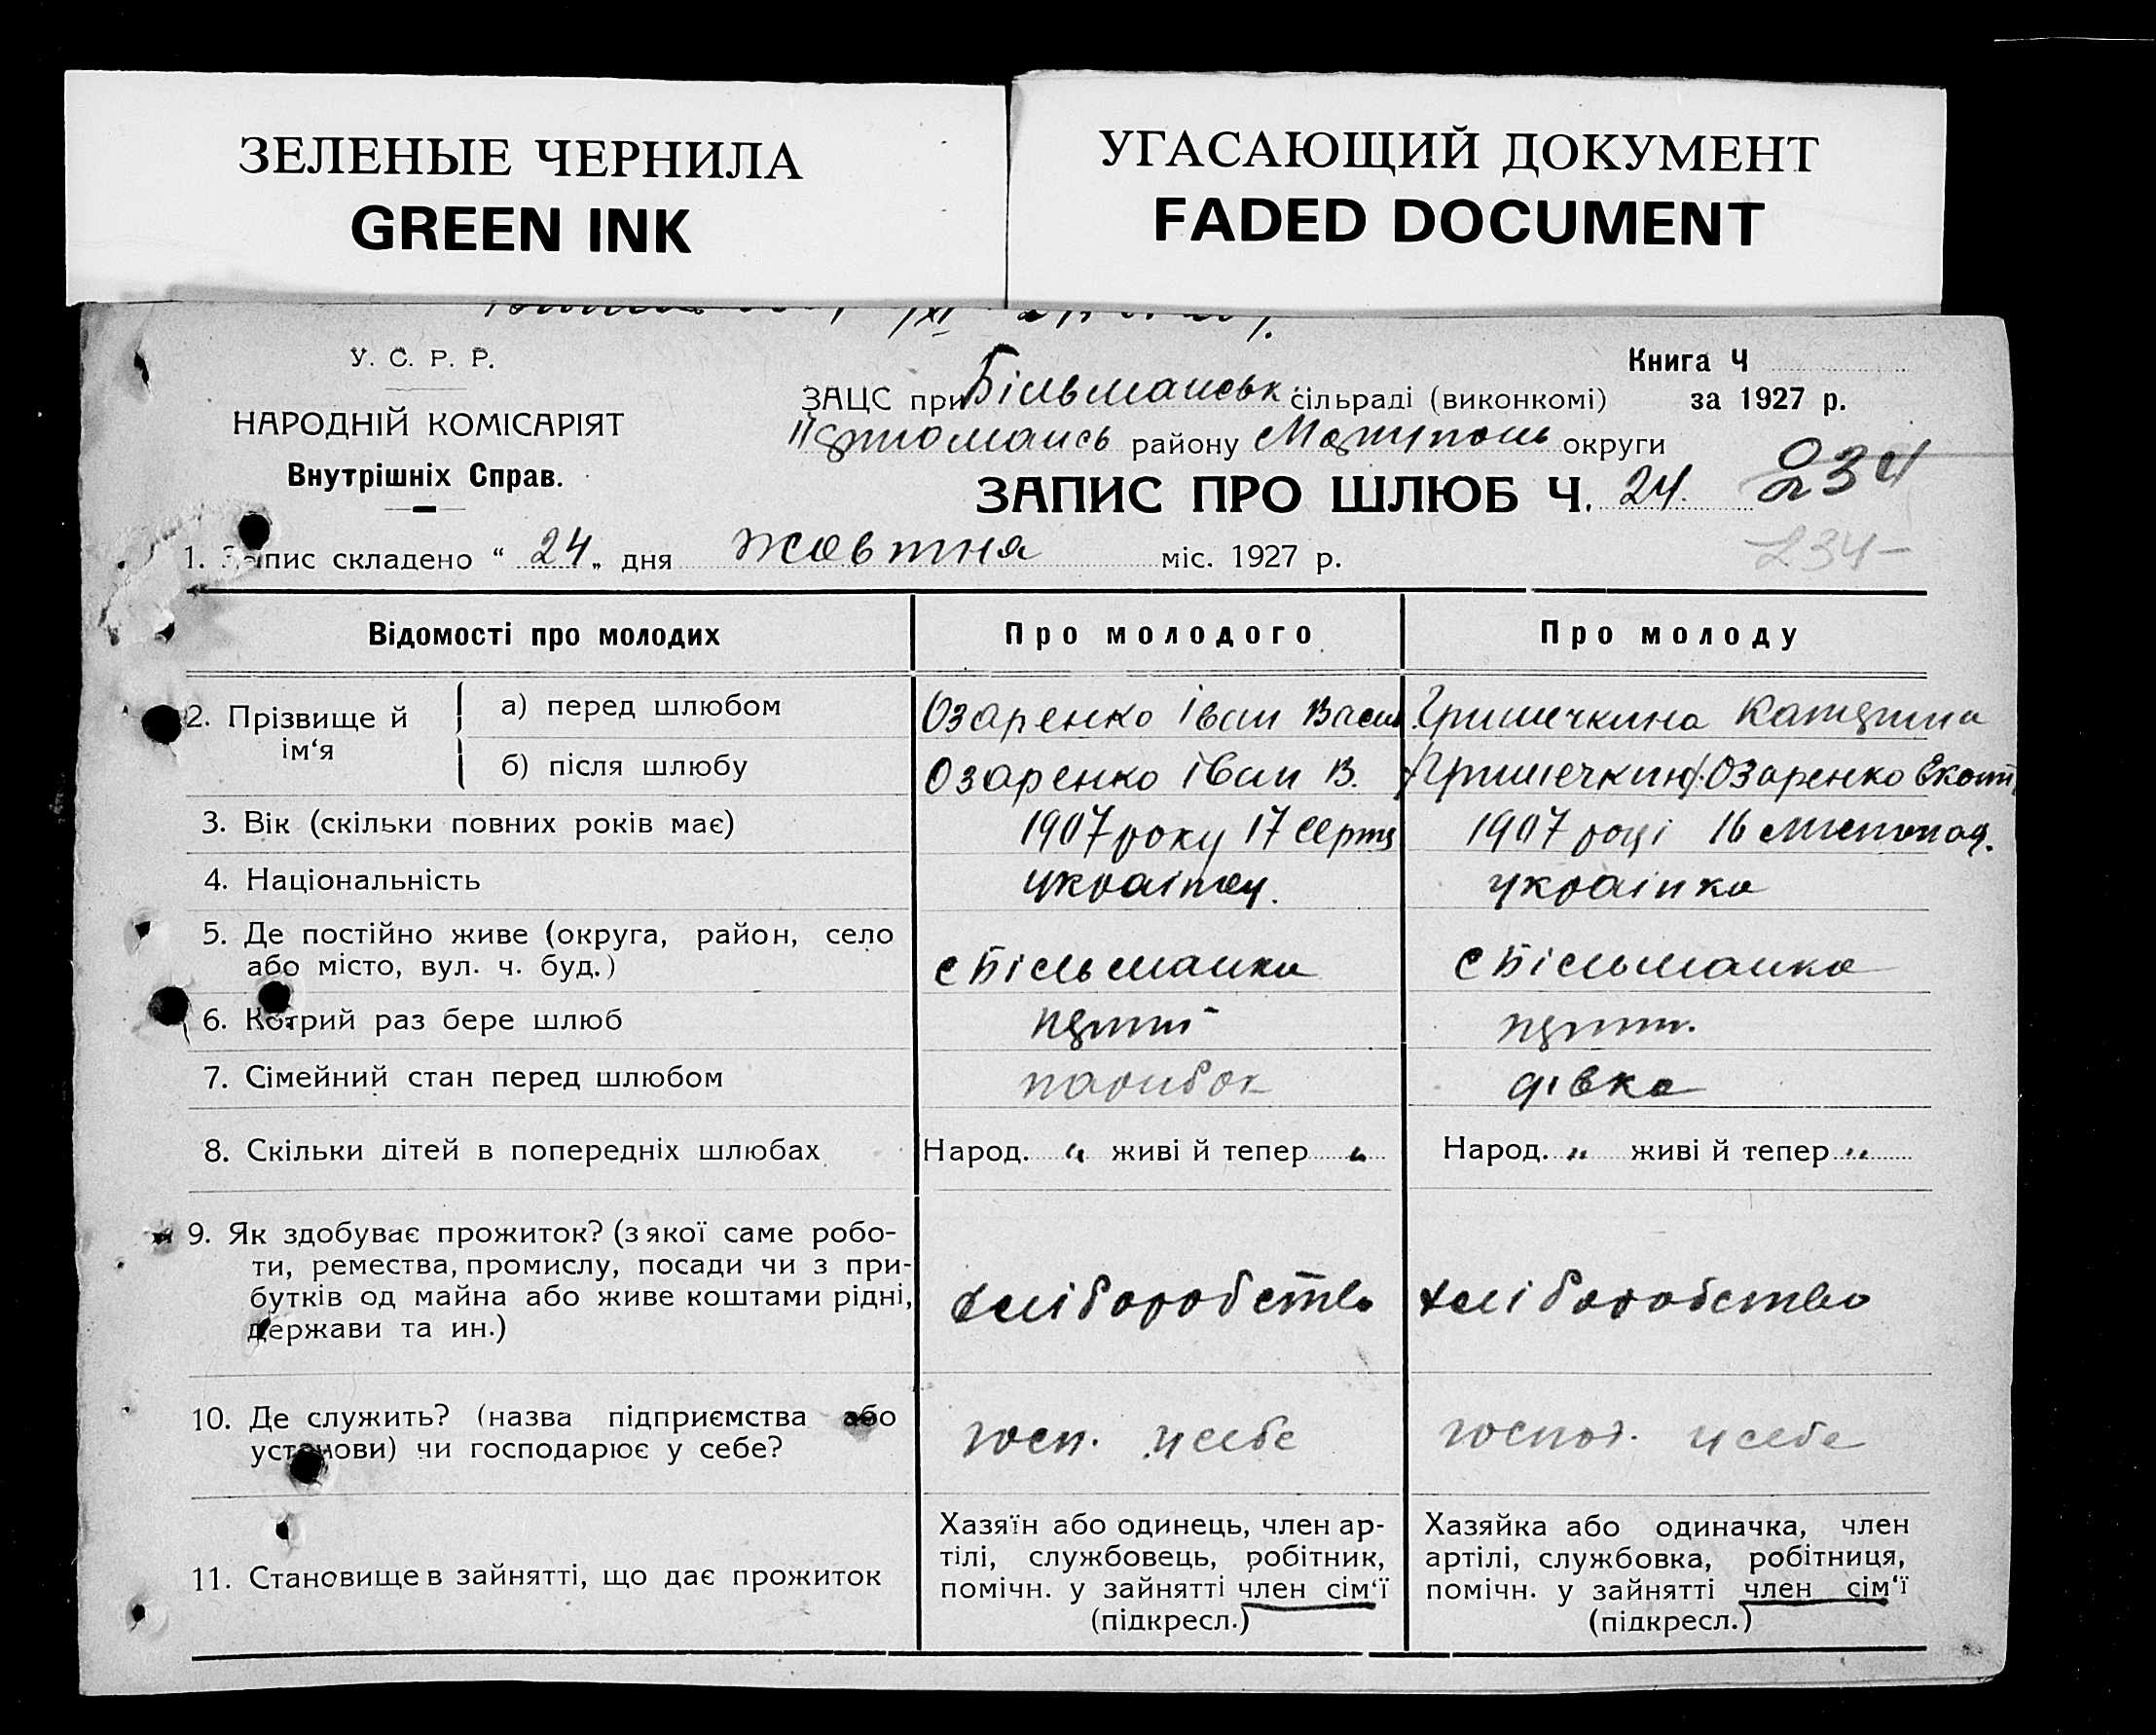 ЗЕЛЕНЫЕ ЧЕРНИЛА
GREEN INK
УГАСАЮЩИЙ ДОКУМЕНТ
FADED DOCUMENT
У. С. Р. Р.
НАРОДНІЙ КОМІСАРІЯТ
Внутрішніх Справ.
Книга Ч
за 1927 р.
ЗАЦС при Більманськ сільраді (виконкомі)
району Маріупольь округи
ЗАПИС ПРО ШЛЮБ Ч. 24.
234
234
1. Запис складено “ 24 „ дня жовтня міс. 1927 р.
Відомості про молодих
Про молодого
Про молоду
2. Прізвище й ім‘я
а) перед шлюбом
Озаренко Іван Васил
Гришечкина Катерина
б) після шлюбу
Озаренко Іван В.
Озаренко
3. Вік (скільки повних років має)
1907 року 17 серпя
1907 році 16 листопад.
4. Національність
українец.
українка
5. Де постійно живе (округа, район, село
або місто, вул. ч. буд.)
с Більманка
с Більманка
6. Котрий раз бере шлюб
перший
перш.
7. Сімейний стан перед шлюбом
парибок
дівка
8. Скільки дітей в попередніх шлюбах
Народ. „ живі й тепер „
Народ. „ живі й тепер „
9. Як здобуває прожиток? (з якої саме робо-
ти, ремества, промислу, посади чи з при-
бутків од майна або живе коштами рідні,
держави та ин.)
хліборобство
хліборобство
10. Де служить? (назва підприємства або
установи) чи господарює у себе?
госп. у себе
господ. у себе
11. Становище в зайнятті, що дає прожиток
Хазяїн або одинець, член ар-
тілі, службовець, робітник,
помічн. у зайнятті член сім‘ї
(підкресл.)
Хазяйка або одиначка, член
артілі, службовка, робітниця,
помічн. у зайнятті член сім‘ї
(підкресл.)